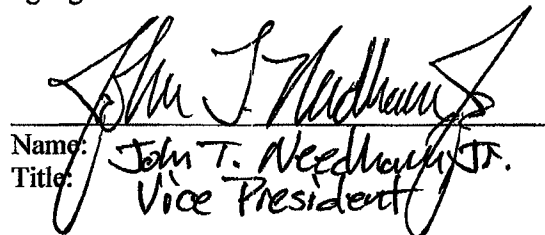 John T. Needham Jr
Name: John T. Needham Jr.
Title: Vice President